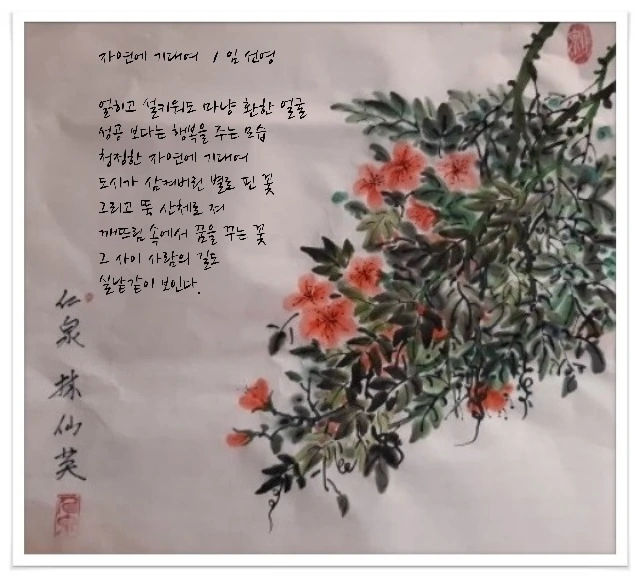 자연에 기대여 / 임선영
얼히고 설키워도 마냥 환한 얼굴
성공 보다는 행복을 주는 모습
청정한 자연에 기대여
도시가 삼켜버린 별로 핀 꽃
그리고 뚝 산체로 져
깨뜨림 속에서 꿈을 꾸는 꽃
그 사이 사람의 길도
실낱같이 보인다.
仁
泉
林
仙
英